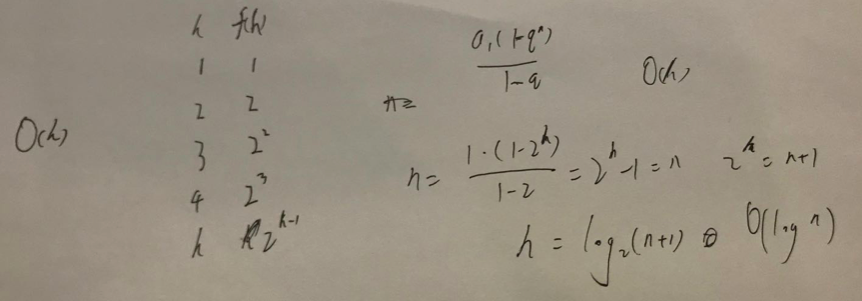 h f(h)
1 1
2 2
3 2^2
4 2^3
h 2^{h-1}
O(h)
a_1(1-q^n) / 1-q
O(h)
n=
n = 1·(1-2^h) / 1-2 = 2^h - 1 = n 2^h = n+1
h = log_2(n+1) O(log n)